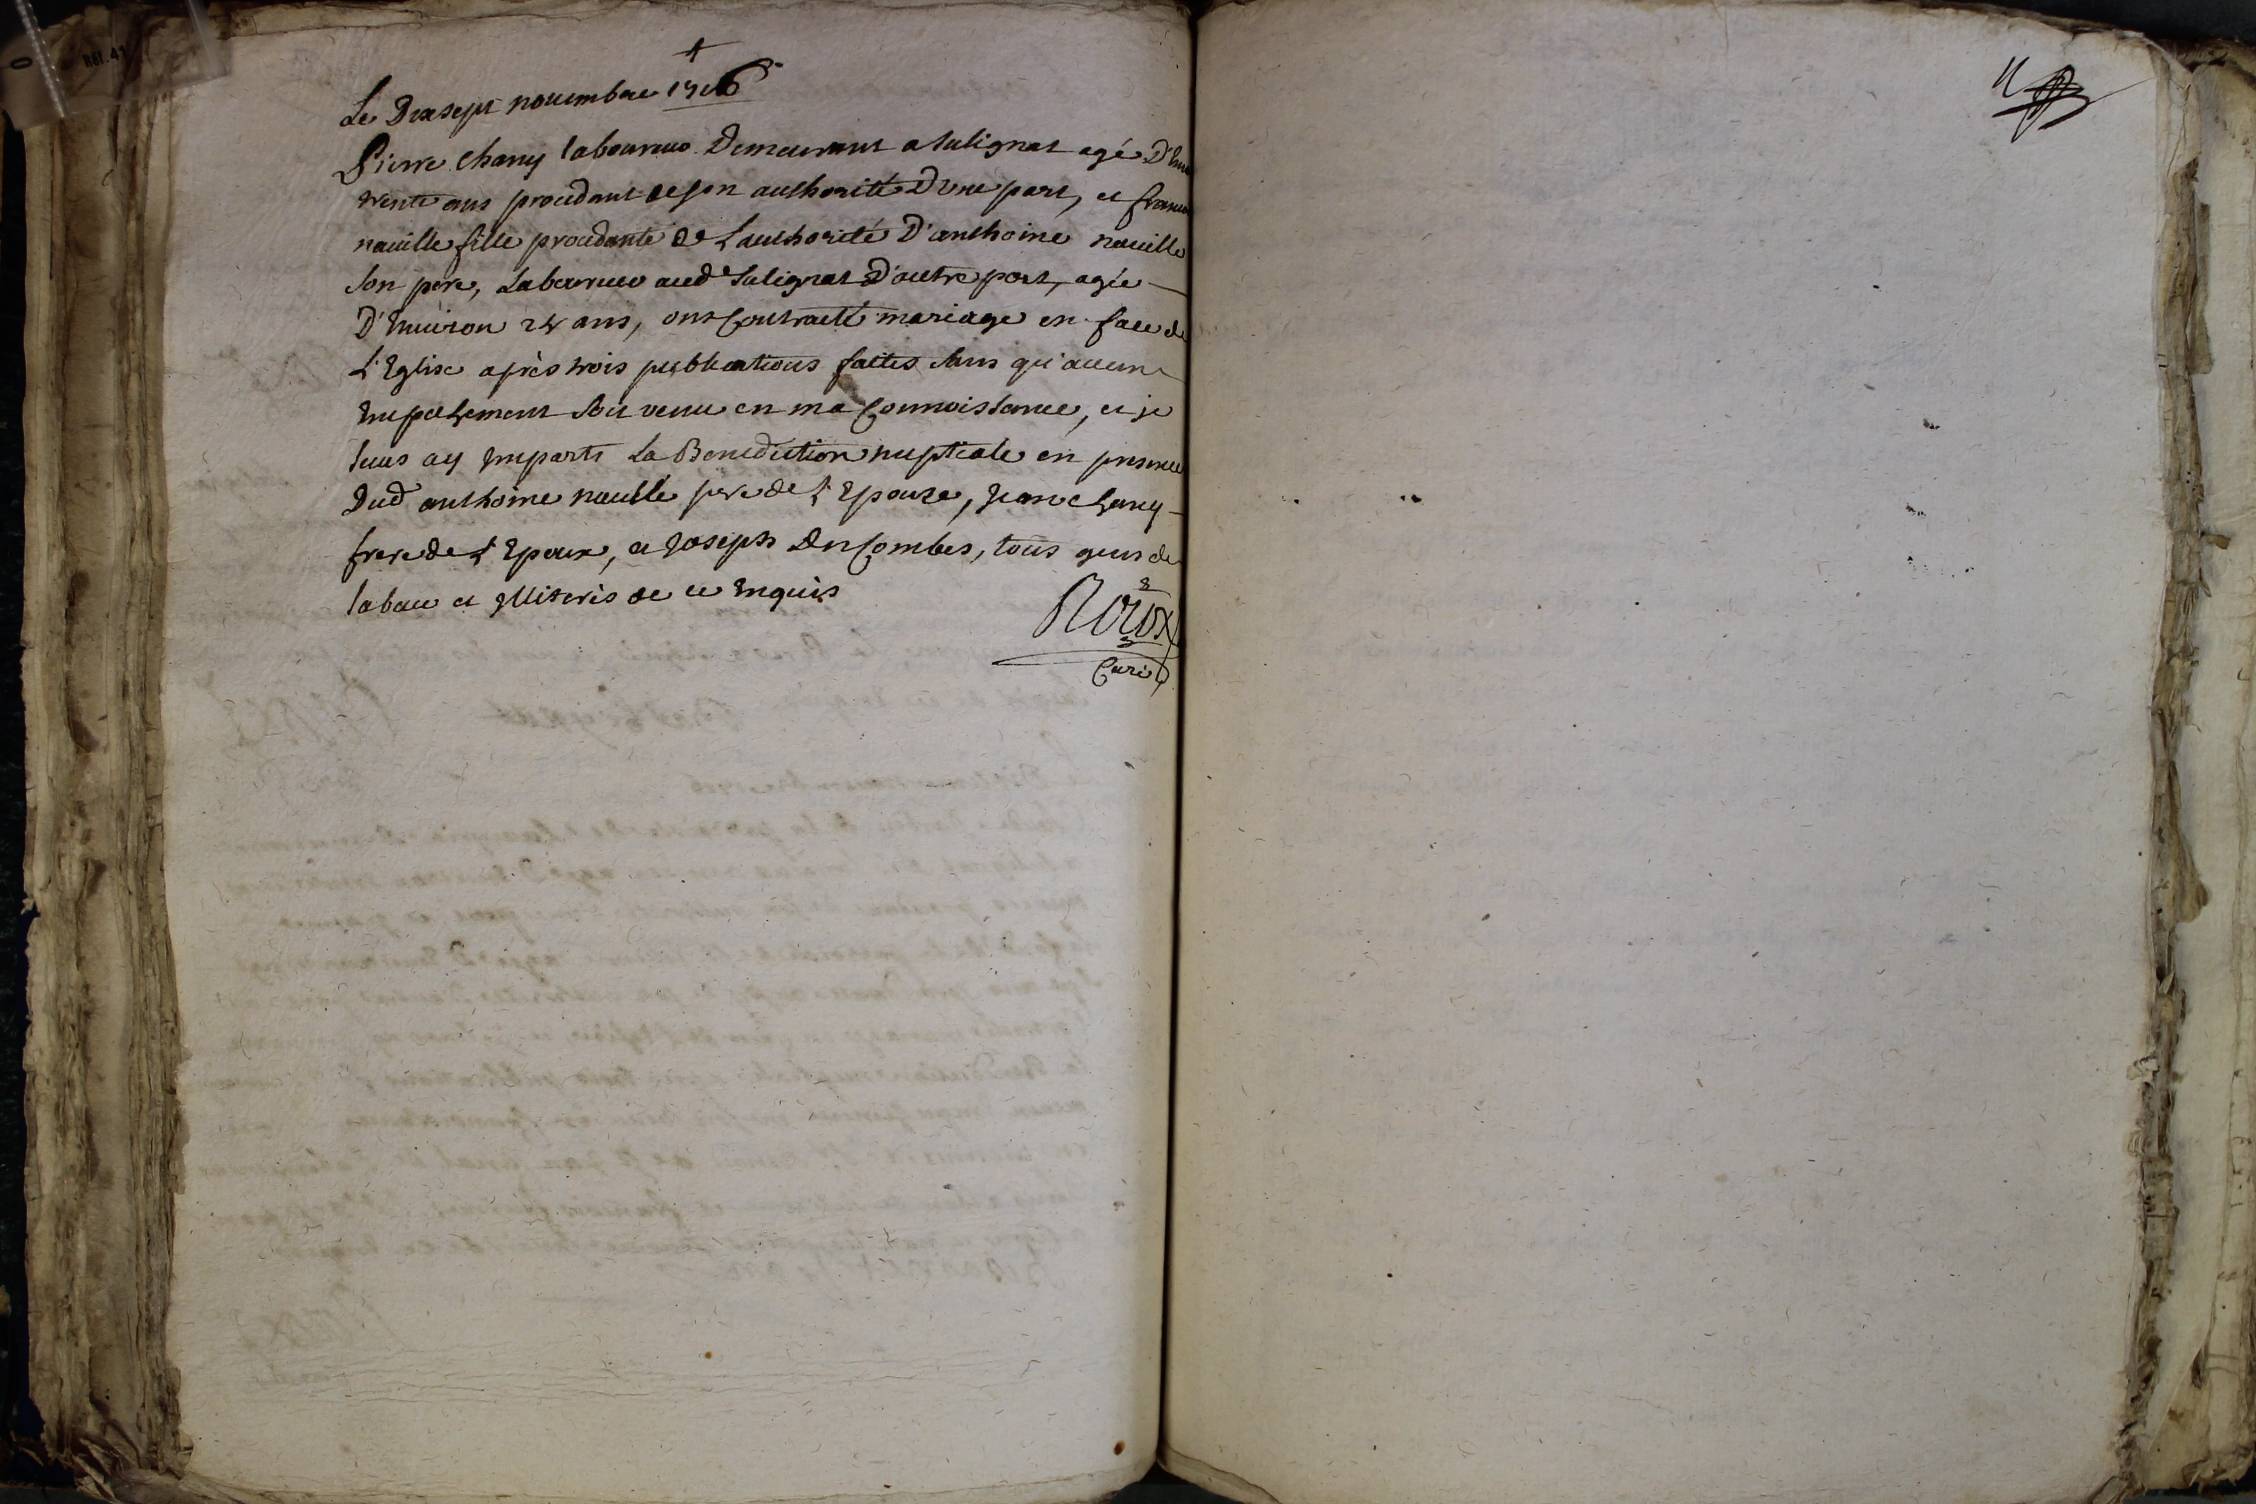 Le Dixsept nouembre 1716
Pierre Chany laboureur Demeurant a Sulignat agé D'Enu
trente ans procedant de son authorité D'une part, et francoi
nauille fille procedante de L'authorité D'anthoine nauille
son pere, Laboureur aud Sulignat D'autre part, agée
D'Enuiron 24 ans, ont Contracté mariage en face de
L'Eglise après trois publications faites sans qu'aucun
Empechement soit venu en ma Connoissance, et je
leurs ay Imparti La Benediction nuptiale en presence
Dud anthoine nauille pere de L'Epouze, Jean Chany
frere de L'Epoux, et Joseph DesCombes, tous gens de
labeur et Illiterés de ce Enquis
Curé
11